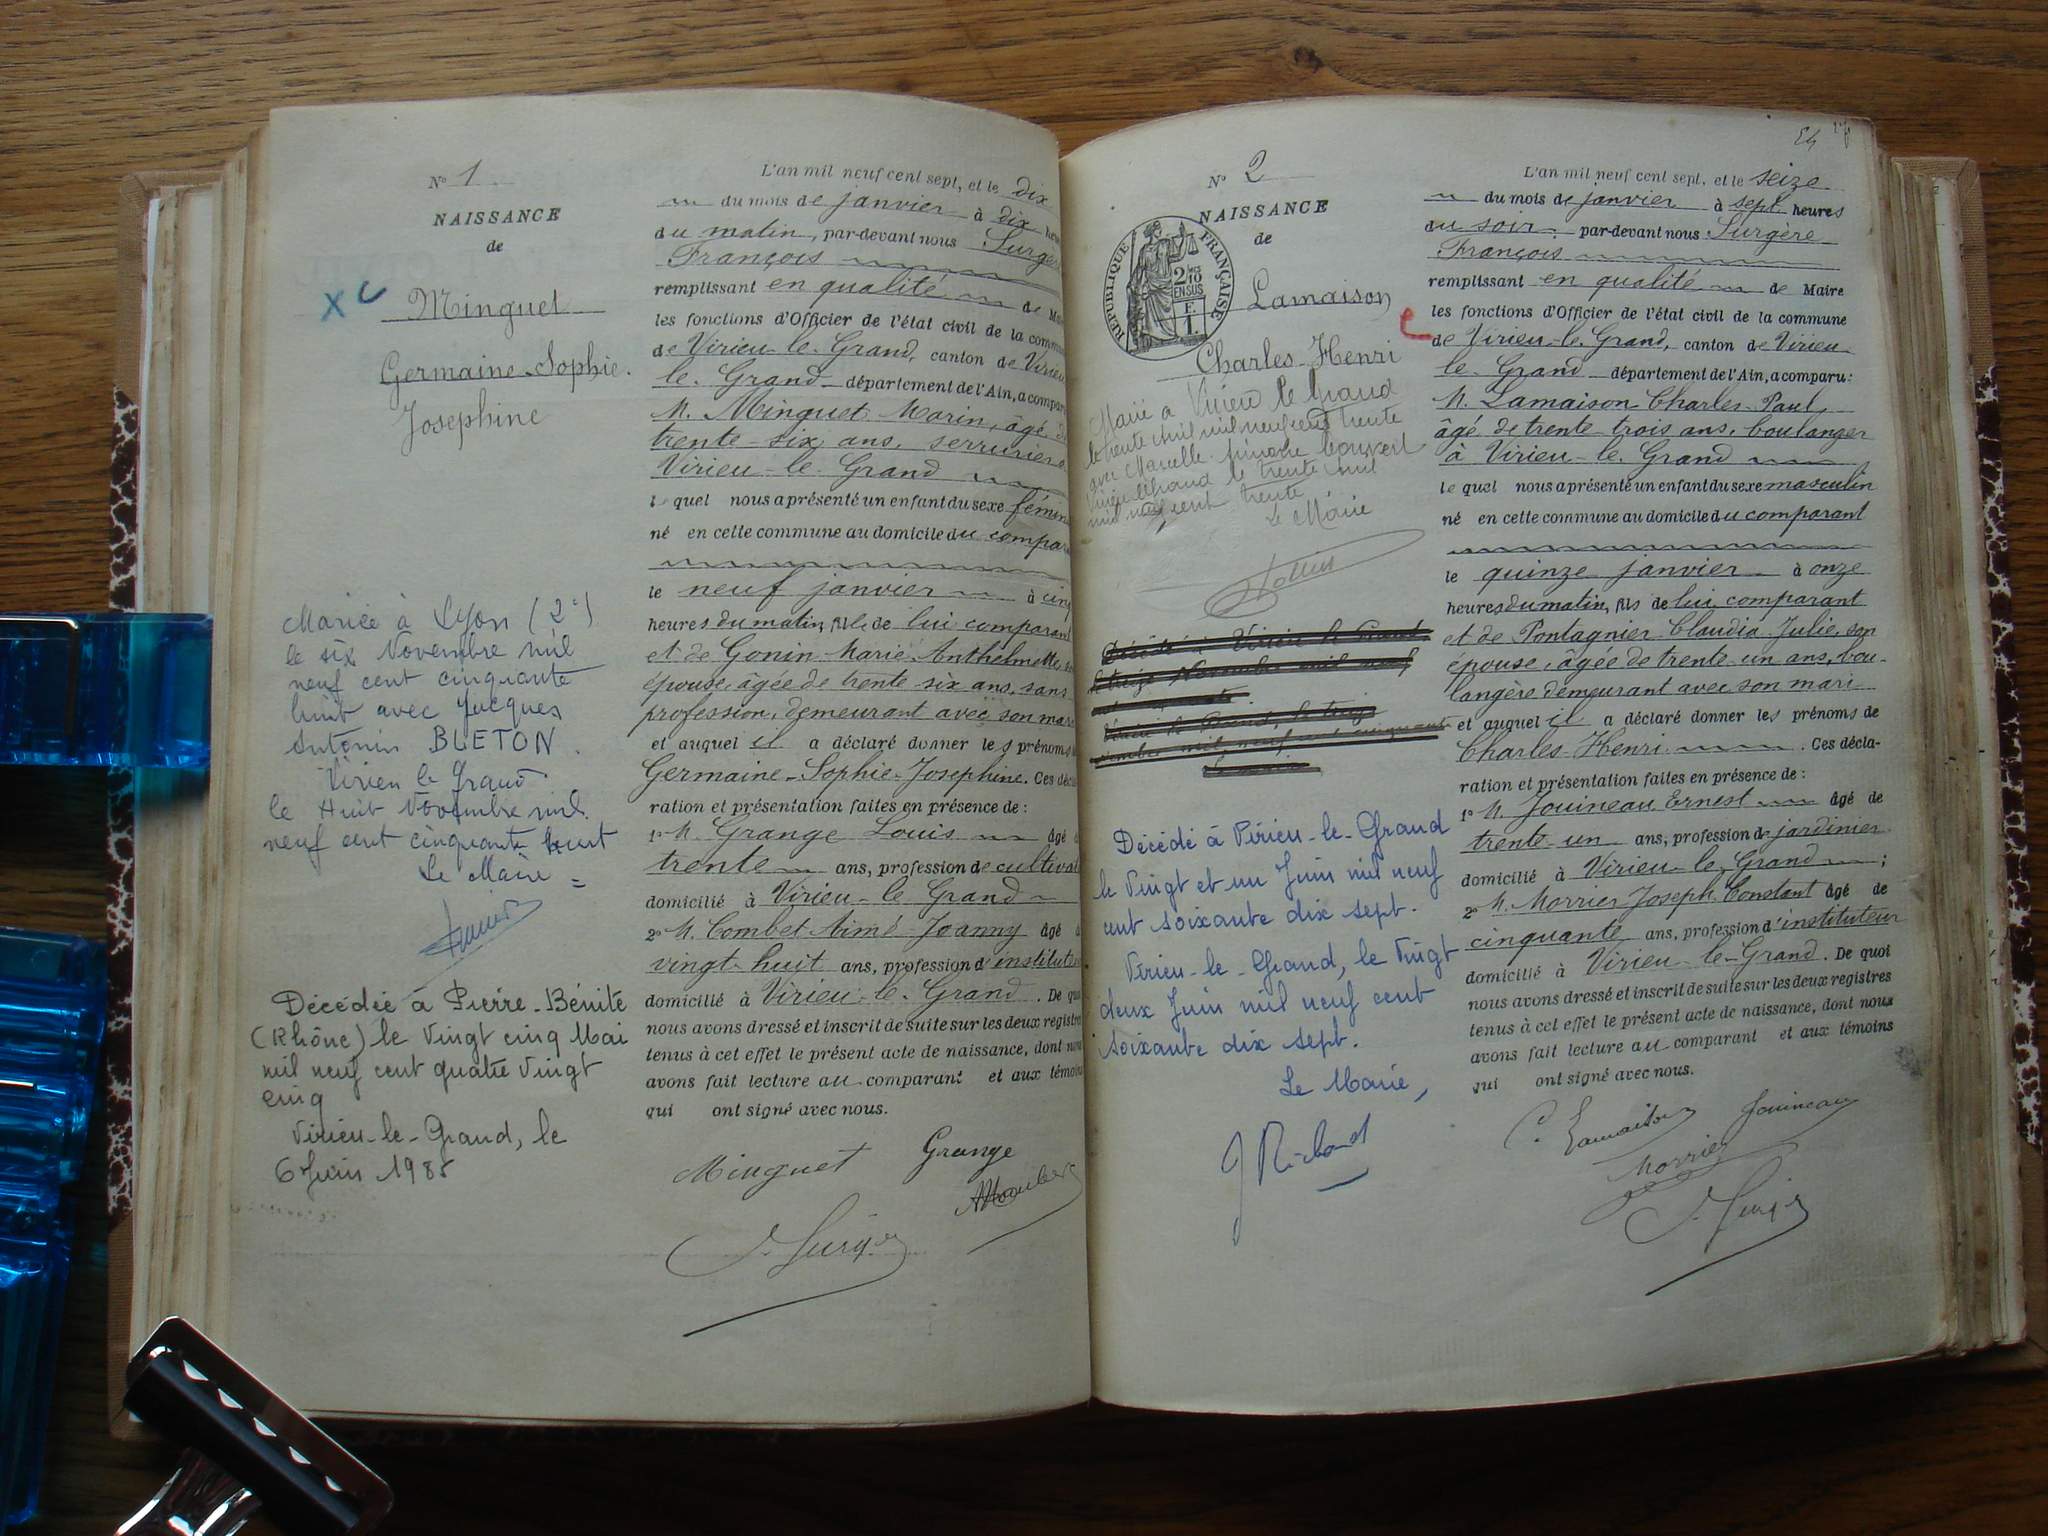 N° 1
NAISSANCE
de
Minguet
Germaine-Sophie.
Josephine
Mariée à Lyon (2e)
le six Novembre mil
neuf cent cinquante
huit avec Jacques
Antonin BLETON.
Virieu le Grand
le Huit Novembre mil
neuf cent cinquante huit
Le Maire
Décédée à Pierre-Bénite
(Rhône) le vingt cinq Mai
mil neuf cent quatre vingt
cinq
Virieu-le-Grand, le
6 Juin 1985
L'an mil neuf cent sept, et le dix
du mois de janvier à dix
du matin, par-devant nous
François
remplissant en qualité de
les fonctions d'Officier de l'état civil de la
de Virieu-le-Grand, canton de
le-Grand département de l'Ain, a
M. Minguet Marin, âgé
trente-six ans, serrurier
Virieu-le-Grand
lequel nous a présenté un enfant du sexe
né en cette commune au domicile du
le neuf janvier à
heures du matin, fille de lui comparant
et de Gonin Marie Anthelmette
épouse, âgée de trente six ans, sans
profession, demeurant avec son mari
et auquel il a déclaré donner les prénoms
Germaine-Sophie-Josephine. Ces
ration et présentation faites en présence de :
1° M. Grange Louis âgé
trente ans, profession de
domicilié à Virieu-le-Grand
2° M. Combet Aimé Joanny âgé
vingt-huit ans, profession d'
domicilié à Virieu-le-Grand. De
nous avons dressé et inscrit de suite sur les deux
tenus à cet effet le présent acte de naissance, dont
avons fait lecture au comparant et aux
qui ont signé avec nous.
Minguet Grange
N° 2
NAISSANCE
de
RÉPUBLIQUE FRANÇAISE
2/10
EN SUS
F.
1.
Lamaison
Charles-Henri
Marié à Virieu le Grand
le trente avril mil neuf cent trente
avec Marcelle
Virieu le Grand le trente avril
mil neuf cent trente
Le Maire
Décédé à Virieu-le-Grand
le vingt et un Juin mil neuf
cent soixante dix sept.
Virieu-le-Grand, le vingt
deux Juin mil neuf cent
soixante dix sept.
Le Maire,
L'an mil neuf cent sept, et le seize
du mois de janvier à sept heures
du soir par-devant nous Surgère
François
remplissant en qualité de Maire
les fonctions d'Officier de l'état civil de la commune
de Virieu-le-Grand, canton de Virieu
le-Grand département de l'Ain, a comparu :
M. Lamaison Charles-Paul,
âgé de trente-trois ans, boulanger
à Virieu-le-Grand
lequel nous a présenté un enfant du sexe masculin
né en cette commune au domicile du comparant
le quinze janvier à onze
heures du matin, fils de lui comparant
et de Pontagnier Claudia-Julie, son
épouse, âgée de trente-un ans, bou-
langère demeurant avec son mari
et auquel il a déclaré donner les prénoms de
Charles-Henri. Ces décla-
ration et présentation faites en présence de :
1° M. Jouineau Ernest âgé de
trente-un ans, profession de jardinier
domicilié à Virieu-le-Grand ;
2° M. Morrier Joseph Constant âgé de
cinquante ans, profession d'instituteur
domicilié à Virieu-le-Grand. De quoi
nous avons dressé et inscrit de suite sur les deux registres
tenus à cet effet le présent acte de naissance, dont nous
avons fait lecture au comparant et aux témoins
qui ont signé avec nous.
C. Lamaison Jouineau
Morrier